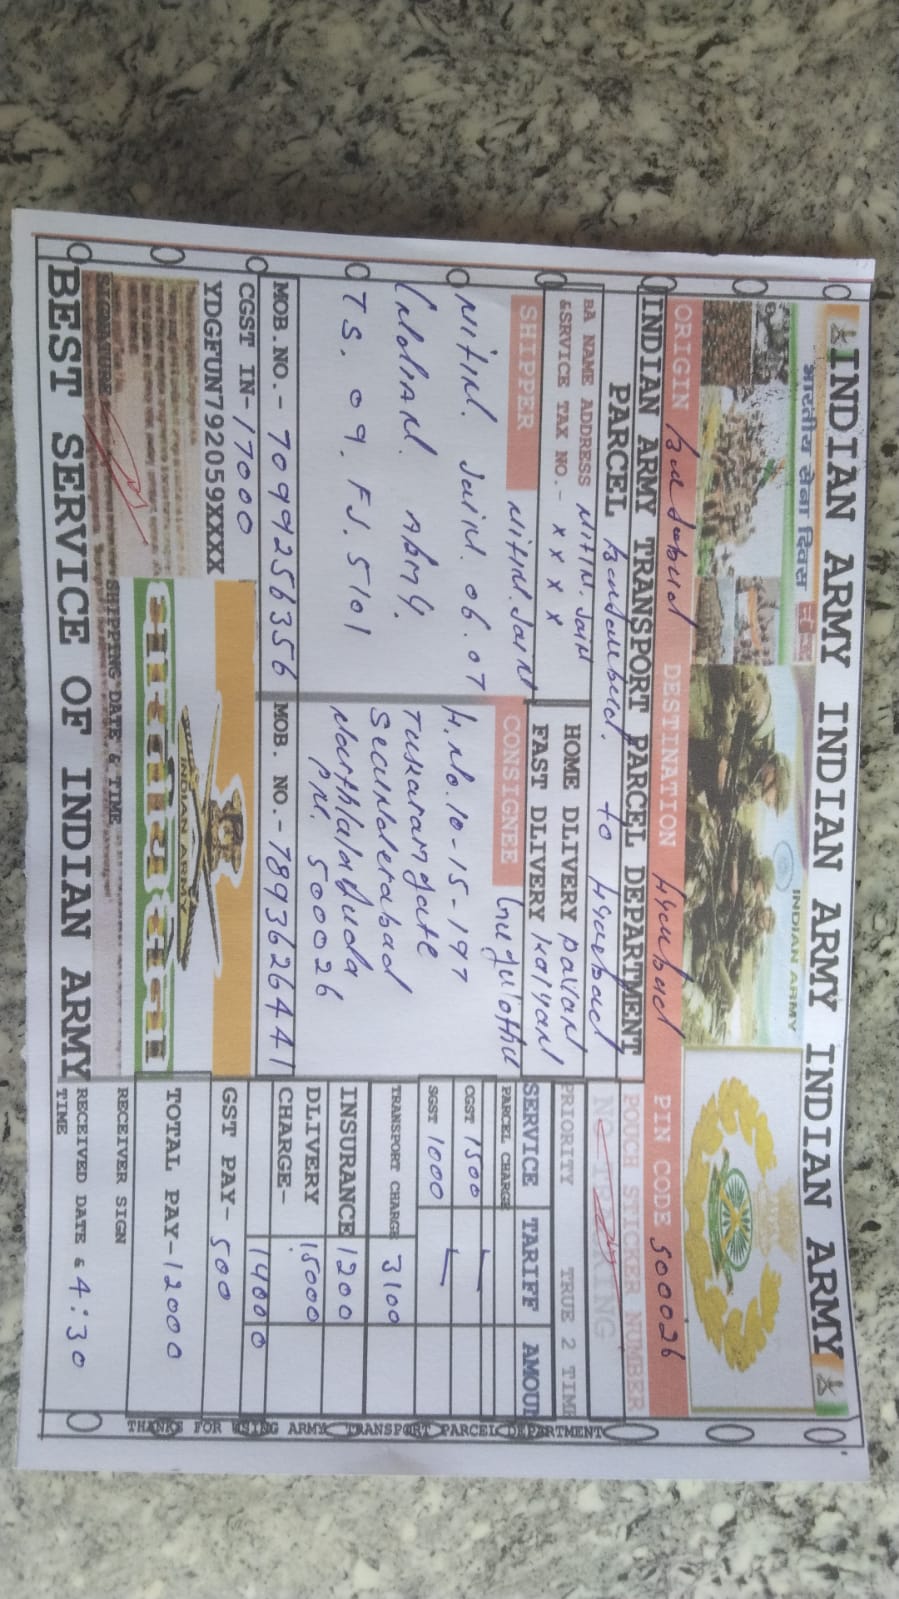 INDIAN ARMY INDIAN ARMY INDIAN ARMY INDIAN ARMY
भारतीय सेना दिवस
INDIAN ARMY
ORIGIN
DESTINATION
PIN CODE 500026
INDIAN ARMY TRANSPORT PARCEL DEPARTMENT
PARCEL to
POUCH STICKER NUMBER
BA NAME ADDRESS NITIN. JAIN
&SRVICE TAX NO.- x x x x
HOME DLIVERY pavan
FAST DLIVERY kalyan
PRIORITY TRUE 2 TIM
SHIPPER NITIN. JAIN
NITIN. JAIN. 06.07
INDIAN. ARMY.
T S. 09. FJ. 5101
MOB.NO.- 7099256356
CONSIGNEE
H.NO.10-15-197
Tukaramgate
Secunderabad
PIN. 500026
MOB. NO.-7893626441
SERVICE TARIFF AMOU
PARCEL CHARGE
CGST 1500
SGST 1000
TRANSPORT CHARGE 3100
INSURANCE 1200
DLIVERY 15000
CHARGE- 14000
GST PAY- 500
TOTAL PAY-12000
CGST IN-17000
YDGFUN792059XXXX
INDIAN ARMY
SIGNATURE
SHIPPING DATE & TIME
RECEIVER SIGN
RECEIVED DATE & TIME 4:30
BEST SERVICE OF INDIAN ARMY
THANKS FOR USING ARMY TRANSPORT PARCEL DEPARTMENT